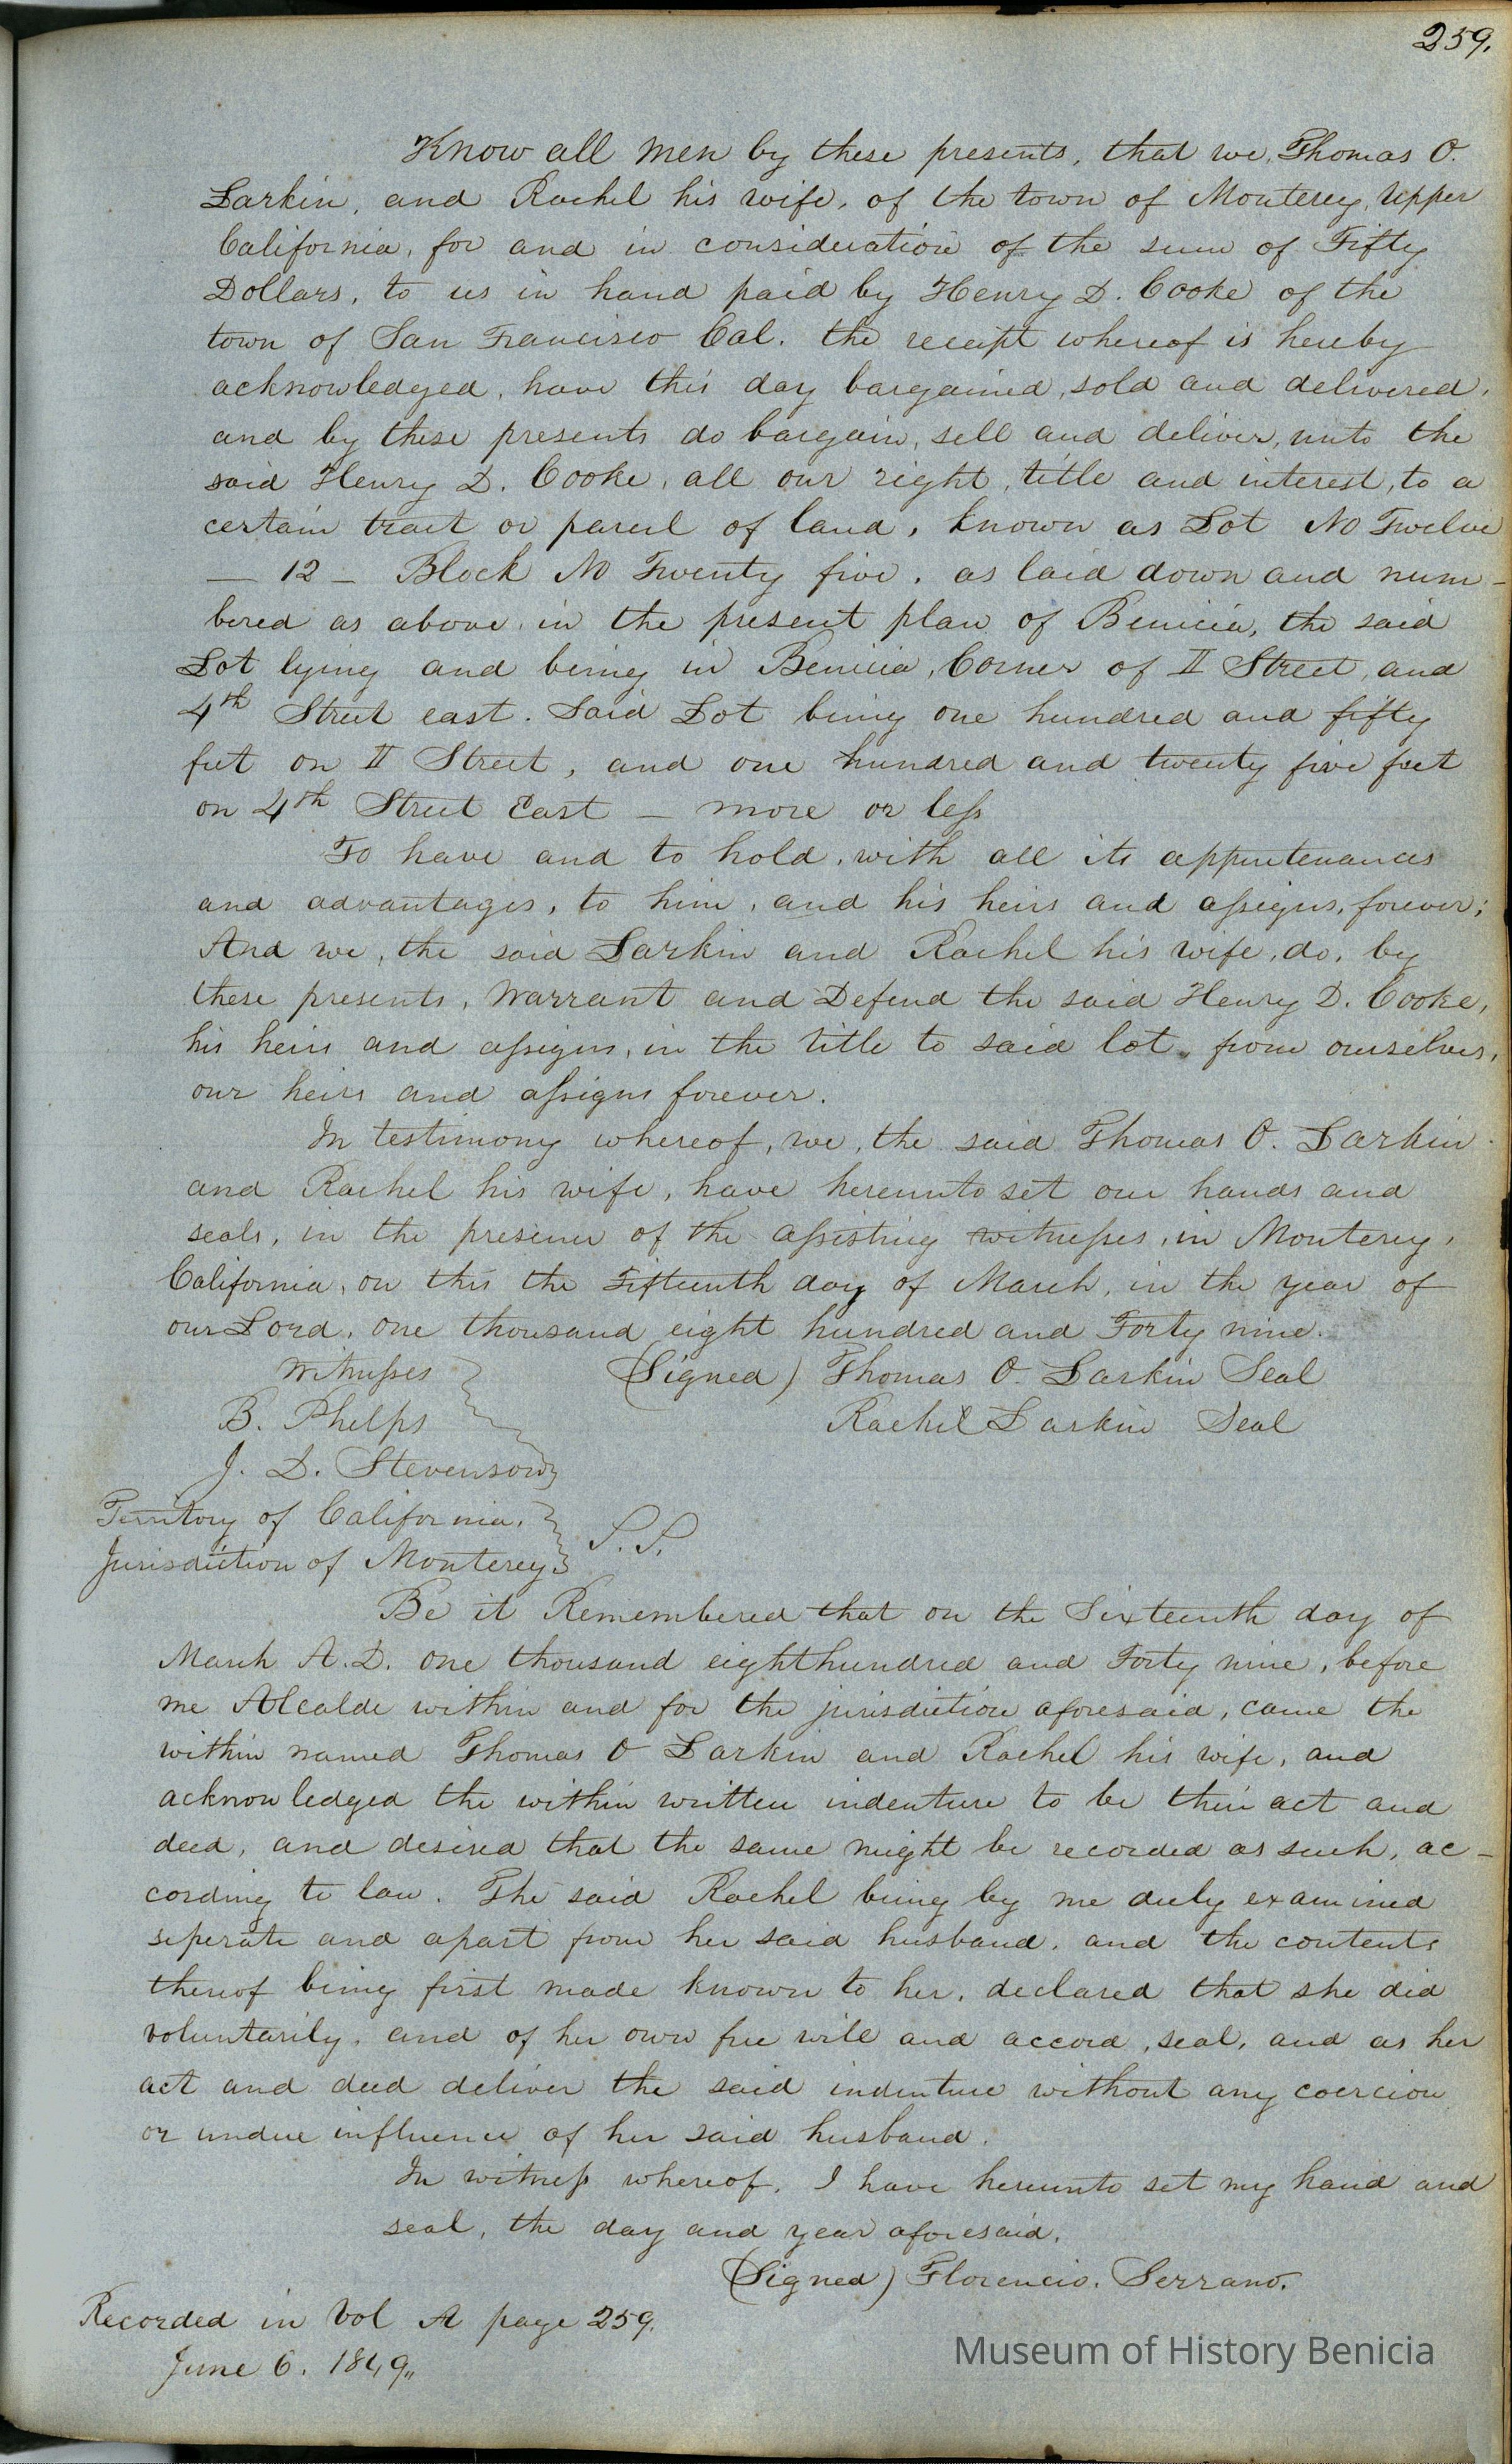 259.
Know all men by these presents, that we, Thomas O.
Larkin, and Rachel his wife, of the town of Monterey, Upper
California, for and in consideration of the sum of Fifty
Dollars, to us in hand paid by Henry D. Cooke of the
town of San Francisco Cal. the receipt whereof is hereby
acknowledged, have this day bargained, sold and delivered,
and by these presents do bargain, sell and deliver, unto the
said Henry D. Cooke, all our right, title and interest, to a
certain tract or parcel of land, known as Lot No Twelve
— 12 — Block No Twenty five, as laid down and num-
bered as above, in the present plan of Benicia, the said
Lot lying and being in Benicia, Corner of II Street, and
4th Street east. Said Lot being one hundred and fifty
feet on II Street, and one hundred and twenty five feet
on 4th Street East — more or less
To have and to hold, with all its appurtenances
and advantages, to him, and his heirs and assigns, forever;
And we, the said Larkin and Rachel his wife, do, by
these presents, Warrant and Defend the said Henry D. Cooke,
his heirs and assigns, in the title to said lot, from ourselves,
our heirs and assigns forever.
In testimony whereof, we, the said Thomas O. Larkin
and Rachel his wife, have hereunto set our hands and
seals, in the presence of the assisting witnesses, in Monterey,
California, on this the Fifteenth day of March, in the year of
our Lord, one thousand eight hundred and Forty nine.
Witnesses (Signed) Thomas O. Larkin Seal
B. Phelps Rachel Larkin Seal
J. D. Stevenson
Territory of California,
Jurisdiction of Monterey S.S.
Be it Remembered that on the Sixteenth day of
March A.D. one thousand eighthundred and Forty nine, before
me Alcalde within and for the jurisdiction aforesaid, came the
within named Thomas O Larkin and Rachel his wife, and
acknowledged the within written indenture to be their act and
deed, and desired that the same might be recorded as such, ac-
cording to law. The said Rachel being by me duly examined
seperate and apart from her said husband, and the contents
thereof being first made known to her, declared that she did
voluntarily, and of her own free will and accord, seal, and as her
act and deed deliver the said indenture without any coercion
or undue influence of her said husband.
In witness whereof, I have hereunto set my hand and
seal, the day and year aforesaid.
(Signed) Florencio. Serrano.
Recorded in Vol A page 259.
June 6. 1849„
Museum of History Benicia